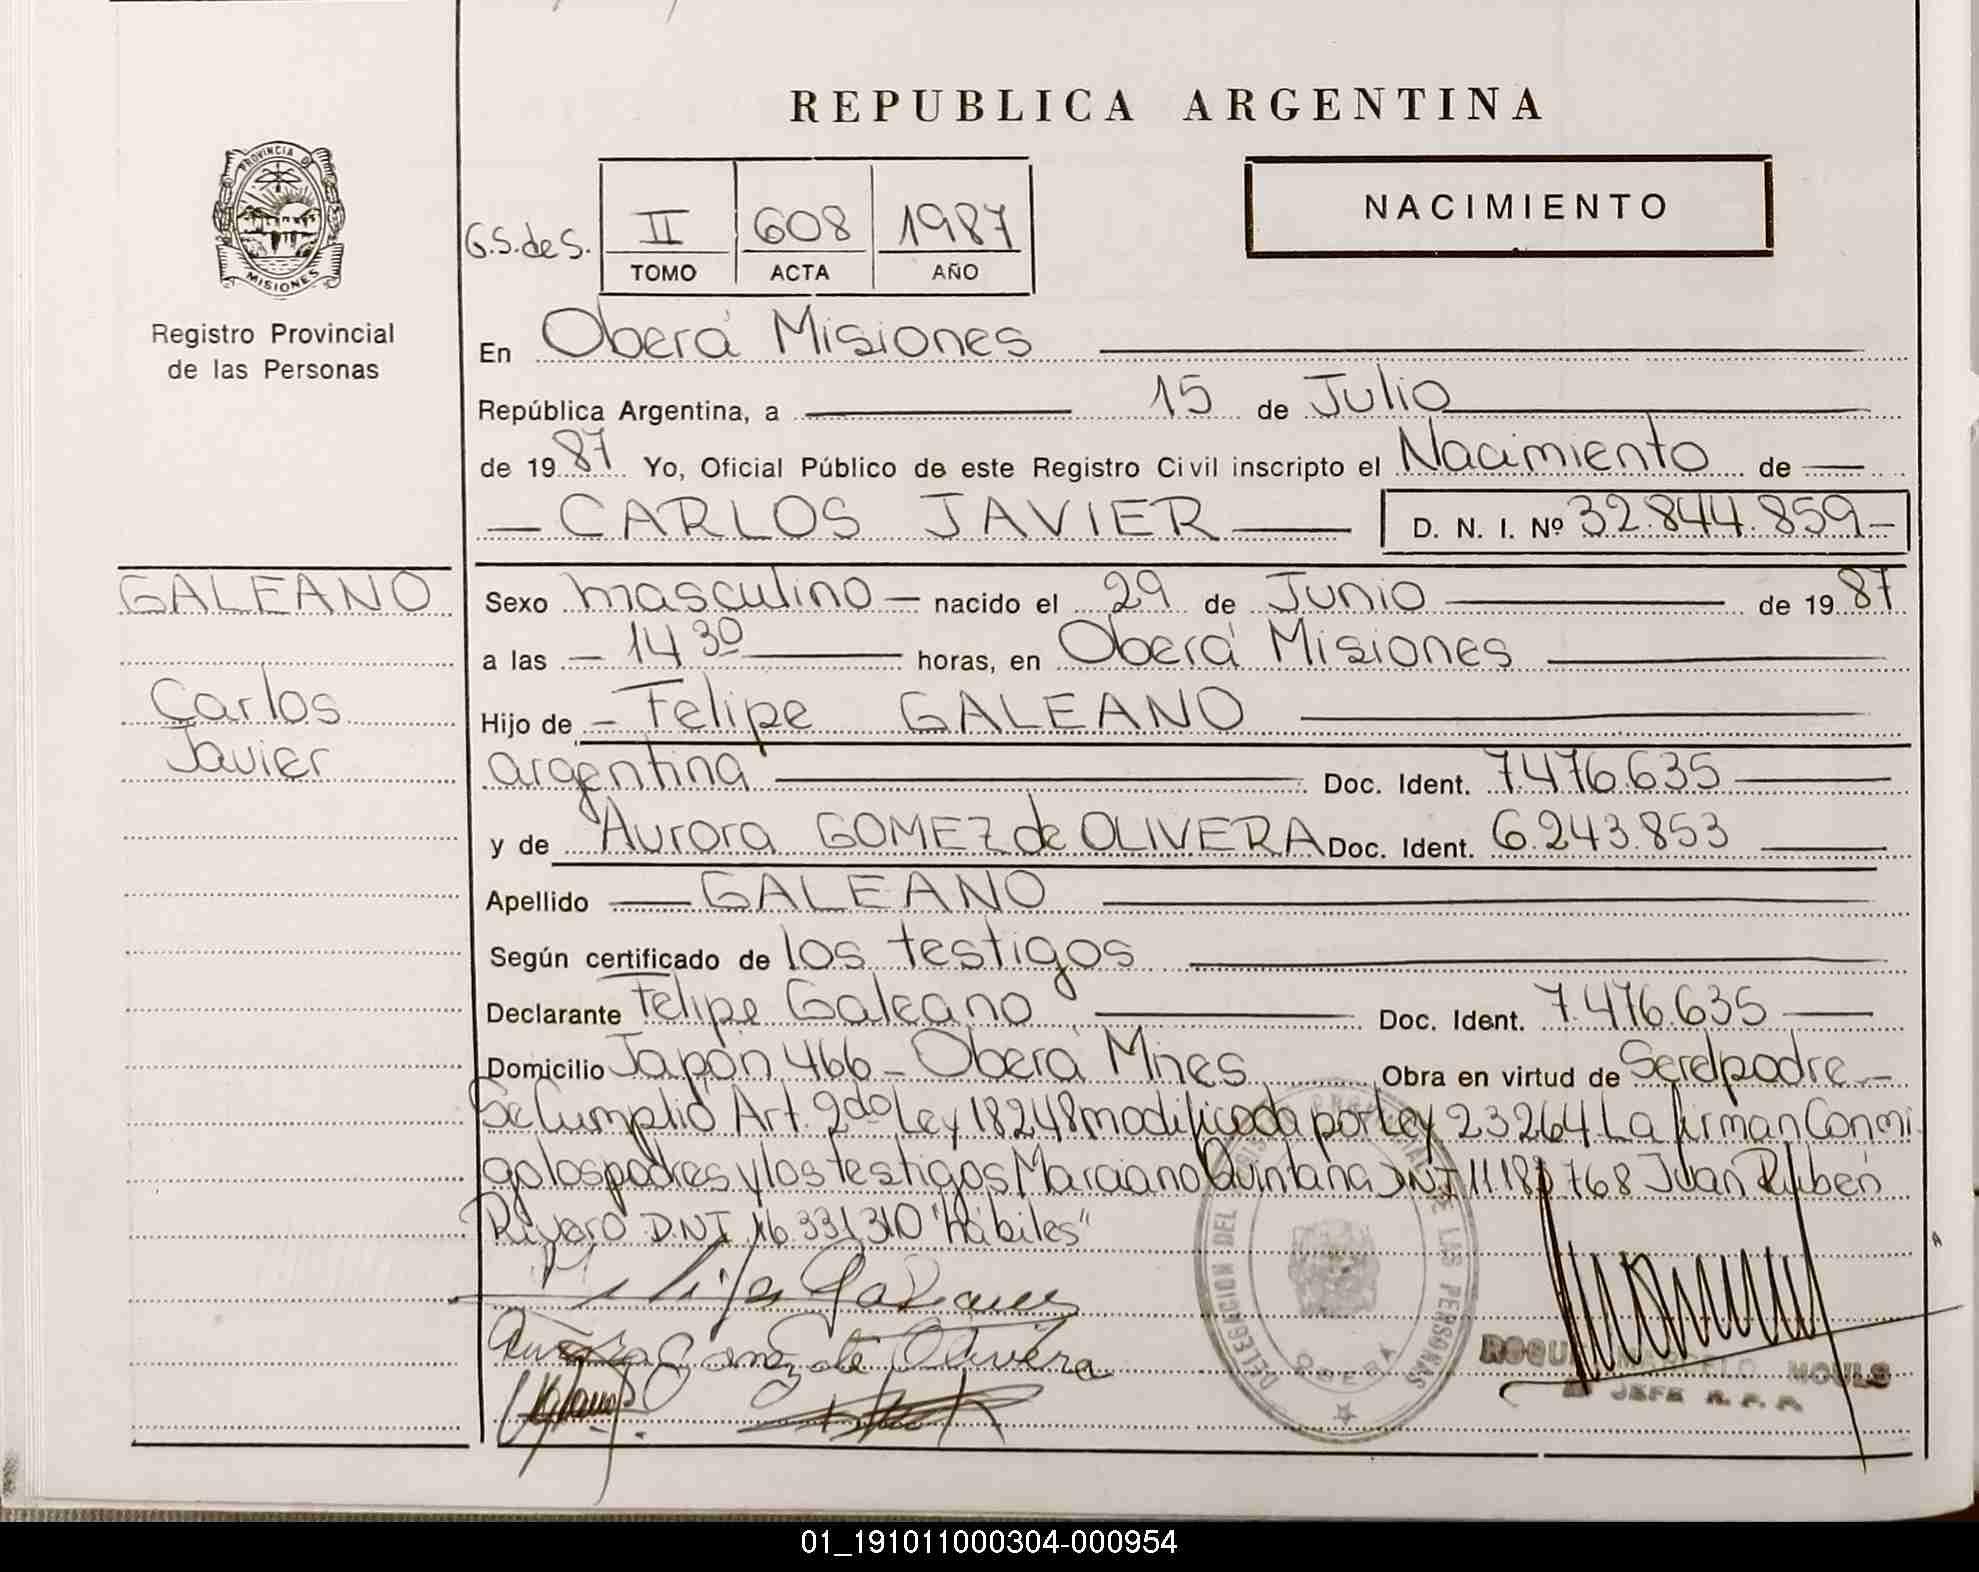 REPUBLICA ARGENTINA
PROVINCIA D
MISIONES
Registro Provincial
de las Personas
G.S.de S.
II 608 1987
TOMO ACTA AÑO
NACIMIENTO
En Oberá Misiones
República Argentina, a 15 de Julio
de 1987 Yo, Oficial Público de este Registro Civil inscripto el Nacimiento de
CARLOS JAVIER D. N. I. Nº 32.844.859-
GALEANO
Carlos
Javier
Sexo masculino nacido el 29 de Junio de 1987
a las 14 30 horas, en Oberá Misiones
Hijo de Felipe GALEANO
argentina Doc. Ident. 7.476.635
y de Aurora GOMEZ de OLIVERA Doc. Ident. 6.243.853
Apellido GALEANO
Según certificado de los testigos
Declarante Felipe Galeano Doc. Ident. 7.476.635
Domicilio Japón 466 - Oberá Mnes Obra en virtud de Serelpadre
Se Cumplió Art. 2do Ley 18248 modificada por Ley 23264. La firman Conmi
go los padres y los testigos Marciano Quintana DNI 768 Juan Ruben
Rivero D.N.I. 16.331.310 "hábiles"
Aurora Gomez de Olivera
DELEGACION DEL REGISTRO PROVINCIAL DE LAS PERSONAS
OBERA
JEFE R. P. P.
01_191011000304-000954